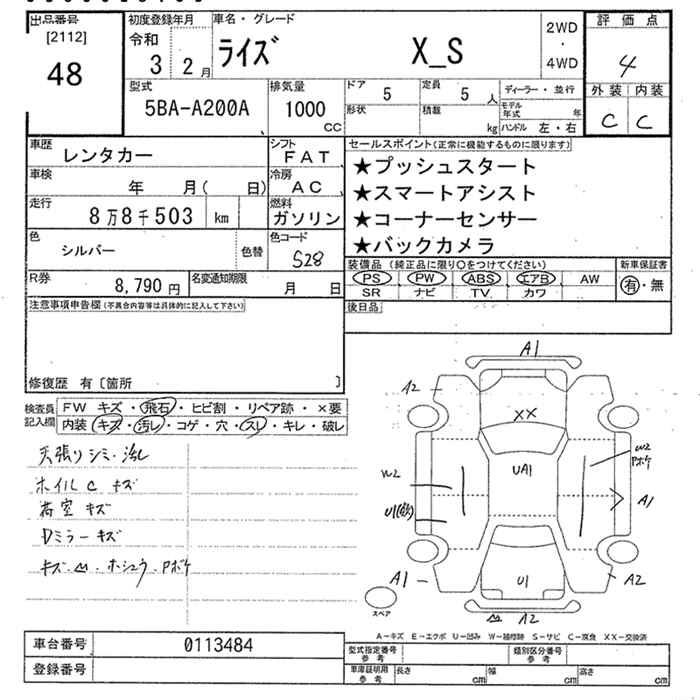 出品番号
[2112]
48
初度登録年月
令和
3 2月
車名・グレード
ライズ X_S
2WD
・
4WD
評価点
4
外装 内装
C C
型式
5BA-A200A
排気量
1000
CC
ドア 5
形状
定員 5 人
積載 kg
ディーラー・並行
モデル年式 年
ハンドル 左・右
車歴 レンタカー
シフト
FAT
車検 年 月( 日)
冷房
AC
走行 8万8千503 km
燃料
ガソリン
色 シルバー 色替
色コード
S28
R券 8,790円
名変通知期限 月 日
セールスポイント(正常に機能するものに限ります)
★プッシュスタート
★スマートアシスト
★コーナーセンサー
★バックカメラ
装備品(純正品に限り○をつけてください)
PS PW ABS エアB AW
SR ナビ TV カワ
新車保証書
有・無
後日品
注意事項申告欄(不具合内容等は具体的に記入して下さい)
修復歴 有〔箇所 〕
検査員記入欄
FW キズ・飛石・ヒビ割・リペア跡・×要
内装 キズ・汚レ・コゲ・穴・スレ・キレ・破レ
天張りシミ・汚レ
ホイルC キズ
荷室キズ
Dミラーキズ
A1
A2
XX
UA1
W2
Pボケ
W2
A1
A1
U1
A2
A2
スペア
A-キズ E-エクボ U-凹み W-補修跡 S-サビ C-腐食 XX-交換済
車台番号 0113484
登録番号
型式指定番号
参考
類別区分番号
参考
車庫証明用
参考
長さ cm
幅 cm
高さ cm